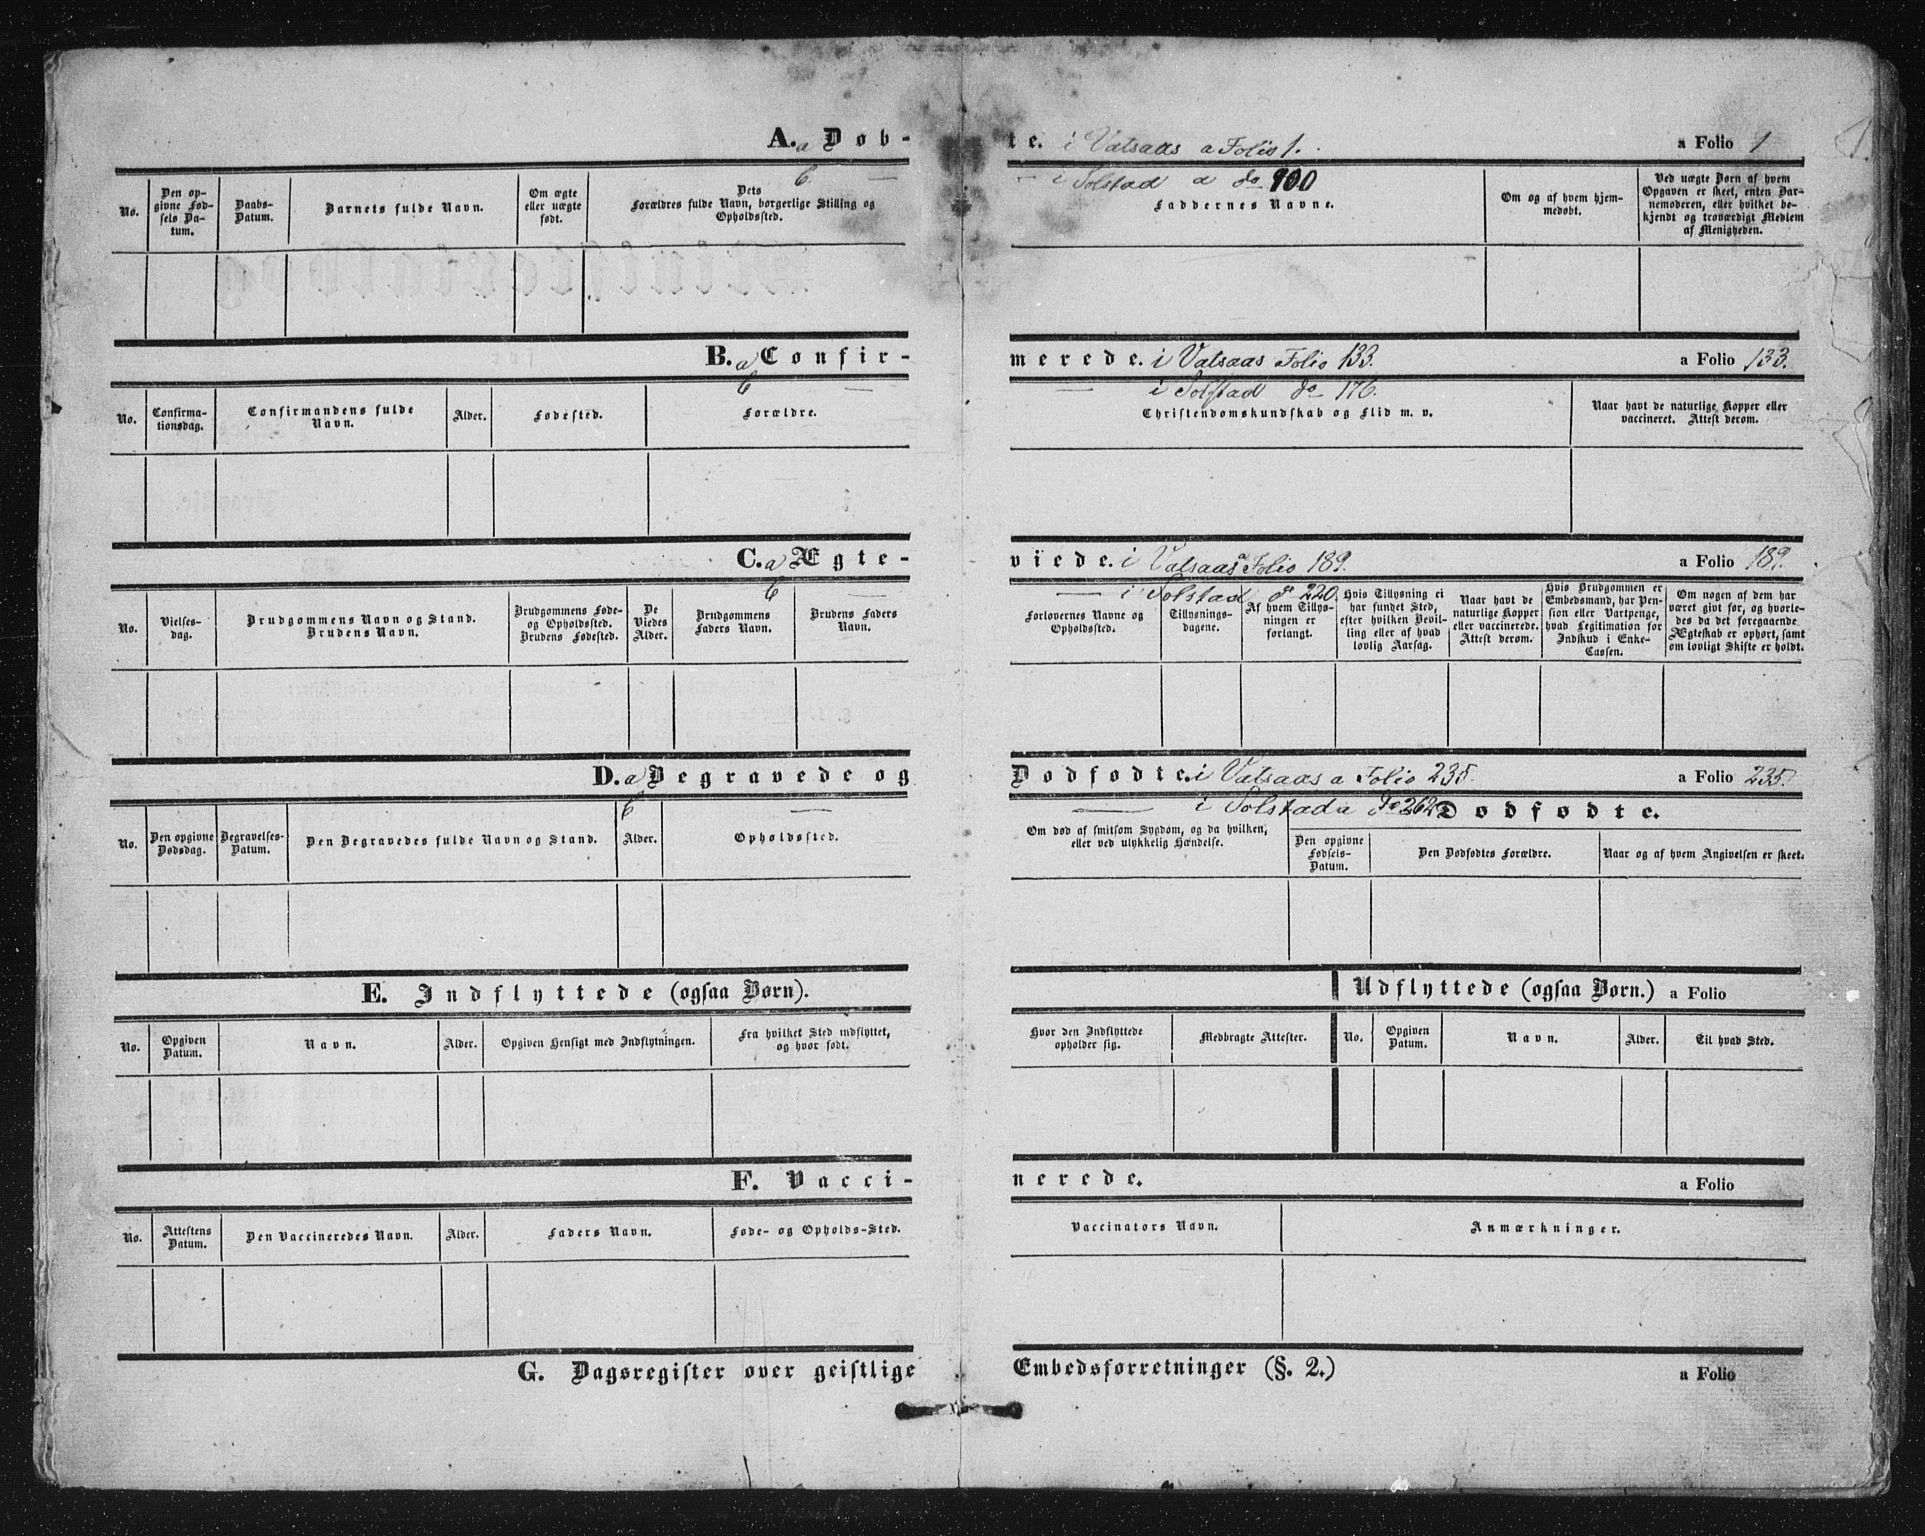 A. a Døb-te. i Valsaas a Folio 1. a Folio 1
b — — i Solstad a do 100
No. Den opgivne Fødsels Datum. Daabs-Datum. Barnets fulde Navn. Om ægte eller uægte født. Dets Forældres fulde Navn, borgerlige Stilling og Opholdssted. Faddernes Navne. Om og af hvem hjemmedøbt. Ved uægte Børn af hvem Opgaven er skeet, enten Barnemoderen, eller hvilket bekjendt og troværdigt Medlem af Menigheden.
B. a Confir-merede. i Valsaas Folio 133. a Folio 133.
b — — i Solstad do 176.
No. Confirmationsdag. Confirmandens fulde Navn. Alder. Fødested. Forældre. Christendomskundskab og Flid m. v. Naar havt de naturlige Kopper eller vaccineret. Attest derom.
C. a Ægte-viede. i Valsaas a Folio 189. a Folio 189.
b — — i Solstad do 220.
No. Vielsesdag. Brudgommens Navn og Stand. Brudens Navn. Brudgommens Føde- og Opholdssted. Brudens Fødested. De Viedes Alder. Brudgommens Faders Navn. Brudens Faders Navn. Forlovernes Navne og Opholdssted. Tillysningsdagene. Af hvem Tillysningen er forlangt. Hvis Tillysning ei har fundet Sted, efter hvilken Bevilling eller af hvad lovlig Aarsag. Naar havt de naturlige Kopper eller vaccinerede. Attest derom. Hvis Brudgommen er Embedsmand, har Pension eller Vartpenge, hvad Legitimation for Indskud i Enke-Cassen. Om nogen af dem har været gift før, og hvorledes da det foregaaende Ægteskab er ophørt, samt om lovligt Skifte er holdt.
D. a Begravede og Dødfødte. i Valsaas a Folio 235. a Folio 235.
b — — i Solstad a do 262 Dødfødte.
No. Den opgivne Dødsdag. Begravelses-Datum. Den Begravedes fulde Navn og Stand. Alder. Opholdssted. Om død af smitsom Sygdom, og da hvilken, eller ved ulykkelig Hændelse. Den opgivne Fødsels-Datum. Den Dødfødtes Forældre. Naar og af hvem Angivelsen er skeet.
E. Indflyttede (ogsaa Børn). Udflyttede (ogsaa Børn.) a Folio
No. Opgiven Datum. Navn. Alder. Opgiven Hensigt med Indflytningen. Fra hvilket Sted indflyttet, og hvor født. Hvor den Indflyttede opholder sig. Medbragte Attester. No. Opgiven Datum. Navn. Alder. Til hvad Sted.
F. Vacci-nerede. a Folio
No. Attestens Datum. Den Vaccineredes Navn. Alder. Faders Navn. Føde- og Opholds-Sted. Vaccinators Navn. Anmærkninger.
G. Dagsregister over geistlige Embedsforretninger (§. 2.) a Folio